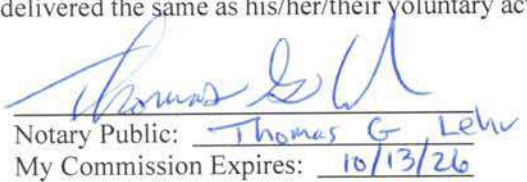 delivered the same as his/her/their voluntary ac
Thomas G
Notary Public: Thomas G Lehr
My Commission Expires: 10/13/26